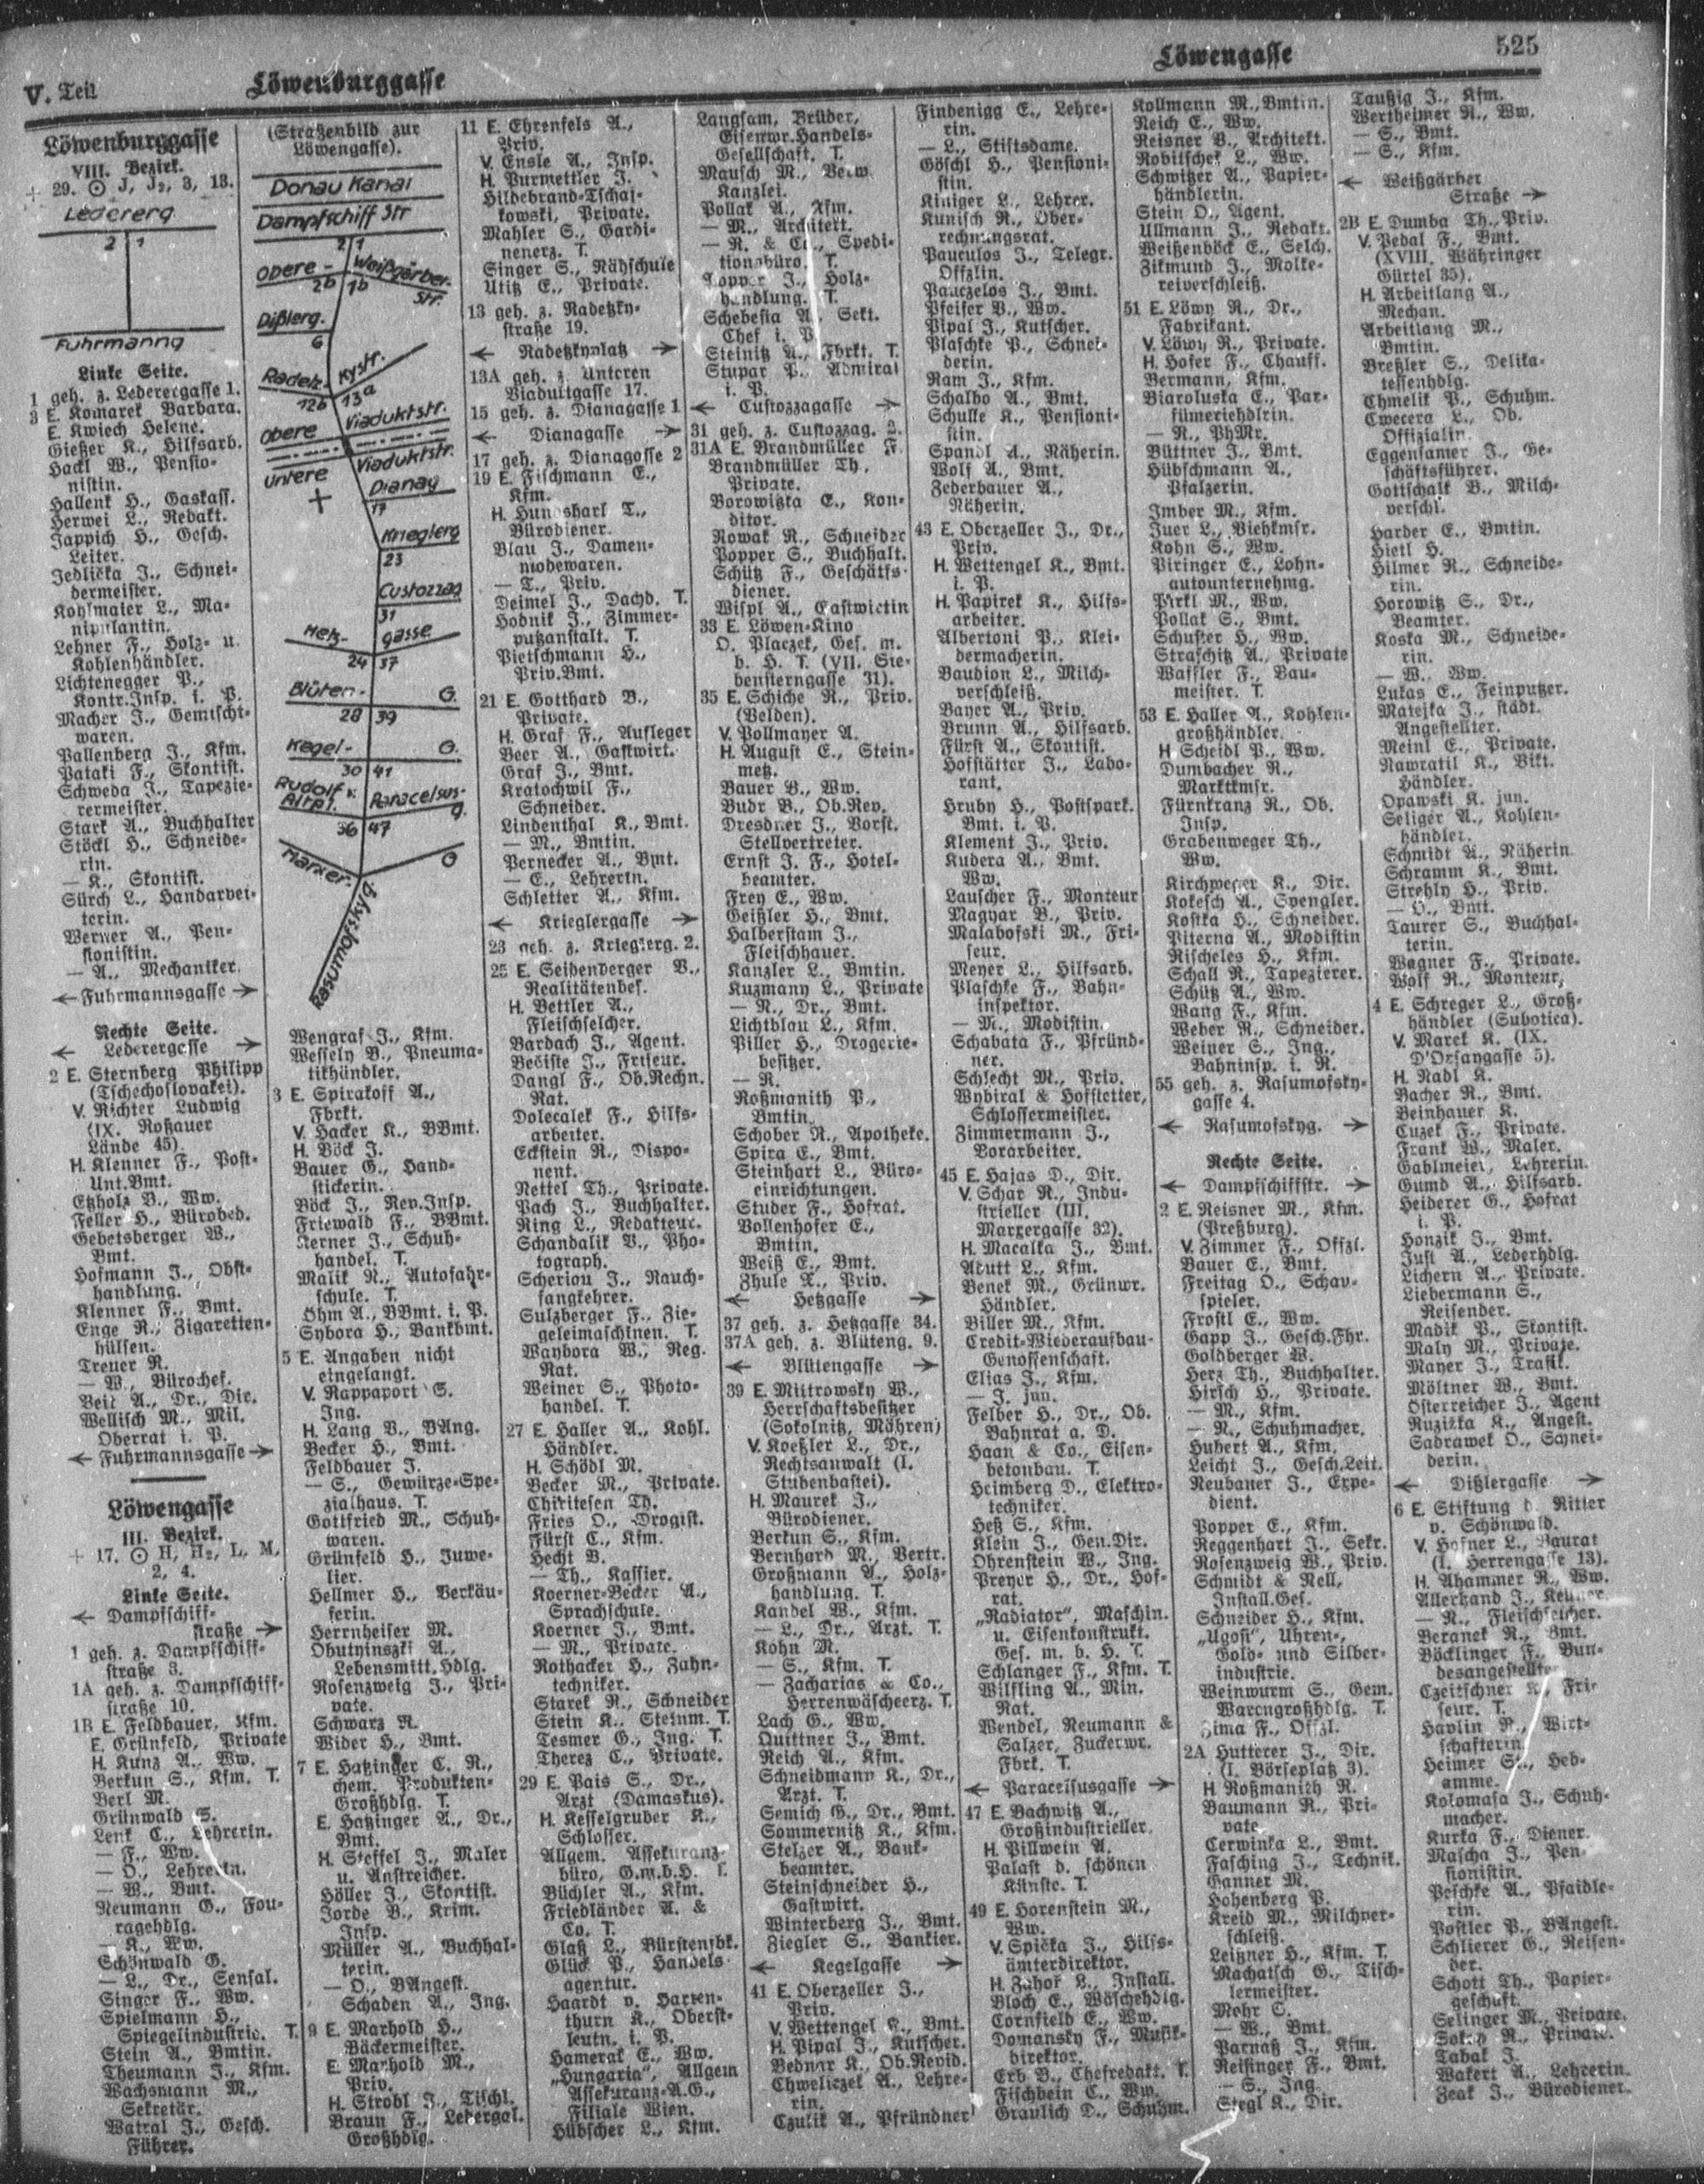 V. Teil
Löwenburggasse
Löwengasse
525
Löwenburggasse
VIII. Bezirk.
+ 29. ⊙ J, J₂, 3, 13.
Ledererg
2 1
Fuhrmanng
Linke Seite.
1 geh. z. Lederergasse 1.
3 E. Komarek Barbara.
E. Kwiech Helene.
Gießer K., Hilfsarb.
Hackl W., Pensio-
nistin.
Hallenk H., Gaskass.
Herwei L., Redakt.
Jappich H., Gesch.
Leiter.
Jedlička J., Schnei-
dermeister.
Kohlmaier L., Ma-
nipulantin.
Lehner F., Holz- u.
Kohlenhändler.
Lichtenegger P.,
Kontr.Insp. i. P.
Macher J., Gemischt-
waren.
Pallenberg J., Kfm.
Pataki F., Skontist.
Schweda J., Tapezie-
rermeister.
Stark A., Buchhalter
Stöckl H., Schneide-
rin.
— K., Skontist.
Sürch L., Handarbei-
terin.
Werner A., Pen-
sionistin.
— A., Mechaniker.
← Fuhrmannsgasse →
Rechte Seite.
← Lederergasse →
2 E. Sternberg Philipp
(Tschechoslovakei).
V. Richter Ludwig
(IX. Roßauer
Lände 45).
H. Klenner F., Post-
Unt.Bmt.
Etzholz B., Ww.
Feller H., Bürobed.
Gebetsberger W.,
Bmt.
Hofmann J., Obst-
handlung.
Klenner F., Bmt.
Enge R., Zigaretten-
hülsen.
Treuer R.
— W., Bürochef.
Veit A., Dr., Dir.
Wellisch M., Mil.
Oberrat i. P.
← Fuhrmannsgasse →
Löwengasse
III. Bezirk.
+ 17. ⊙ H, H₂, L, M,
2, 4.
Linke Seite.
← Dampfschiff-
straße →
1 geh. z. Dampfschiff-
straße 8.
1A geh. z. Dampfschiff-
straße 10.
1B E. Feldbauer, Kfm.
E. Grünfeld, Private
H. Kunz A., Ww.
Berkun S., Kfm. T.
Berl M.
Grünwald S.
Lenk C., Lehrerin.
— F., Ww.
— O., Lehrerin.
— W., Bmt.
Neumann G., Fou-
ragehdlg.
— K., Ww.
Schönwald G.
— L., Dr., Sensal.
Singer F., Ww.
Spielmann H.,
Spiegelindustrie. T.
Stein A., Bmtin.
Theumann J., Kfm.
Wachsmann M.,
Sekretär.
Watral J., Gesch.
Führer.
(Straßenbild zur
Löwengasse).
Donau Kanal
Dampfschiff Str
2 1
Obere - Weißgärber
2b 1b Str.
Dißlerg.
6
Radetz- kystr.
12b 13a
Obere Viaduktstr.
Untere Viaduktstr.
Dianag
17
Krieglerg
23
Custozzag
31
Hetz- gasse
24 37
Blüten- G.
28 39
Kegel- G.
30 41
Rudolf v. Alt Pl. Paracelsus- g.
36 47
Marxer. G
Rasumofskyg.
Wengraf J., Kfm.
Wessely B., Pneuma-
tikhändler.
3 E. Spirakoff A.,
Fbrkt.
V. Hacker K., BBmt.
H. Böck J.
Bauer G., Hand-
stickerin.
Böck J., Rev.Insp.
Friewald F., BBmt.
Kerner J., Schuh-
handel. T.
Malik R., Autofahr-
schule. T.
Öhm A., BBmt. i. P.
Sybora H., Bankbmt.
5 E. Angaben nicht
eingelangt.
V. Rappaport S.
Ing.
H. Lang B., BAng.
Becker H., Bmt.
Feldbauer J.
— S., Gewürze-Spe-
zialhaus. T.
Gottfried M., Schuh-
waren.
Grünfeld H., Juwe-
lier.
Hellmer H., Verkäu-
ferin.
Herrnheiser M.
Obutyinszki A.,
Lebensmitt.Hdlg.
Rosenzweig J., Pri-
vate.
Schwarz R.
Wider H., Bmt.
7 E. Hatzinger C. R.,
chem. Produkten-
Großhdlg. T.
E. Hatzinger A., Dr.,
Bmt.
H. Steffel J., Maler
u. Anstreicher.
Höller J., Skontist.
Jorde B., Krim.
Insp.
Müller A., Buchhal-
terin.
— O., BAngest.
Schaden A., Ing.
9 E. Marhold H.,
Bäckermeister.
E. Marhold M.,
Priv.
H. Strobl J., Tischl.
Braun F., Ledergal.
Großhdlg.
11 E. Ehrenfels A.,
Priv.
V. Ensle A., Insp.
H. Purmettler J.
Hildebrand-Tschai-
kowski, Private.
Mahler S., Gardi-
nenerz. T.
Singer S., Nähschule
Utitz E., Private.
13 geh. z. Radetzky-
straße 19.
← Radetzkyplatz →
13A geh. z. Unteren
Viaduktgasse 17.
15 geh. z. Dianagasse 1
← Dianagasse →
17 geh. z. Dianagasse 2
19 E. Fischmann E.,
Kfm.
H. Hundsharl T.,
Bürodiener.
Blau J., Damen-
modewaren.
— T., Priv.
Deimel J., Dachd. T.
Hodnik J., Zimmer-
putzanstalt. T.
Pietschmann H.,
Priv.Bmt.
21 E. Gotthard B.,
Private.
H. Graf F., Aufleger
Beer A., Gastwirt.
Graf J., Bmt.
Kratochwil F.,
Schneider.
Lindenthal K., Bmt.
— M., Bmtin.
Pernecker A., Bmt.
— E., Lehrerin.
Schletter A., Kfm.
← Krieglergasse →
23 geh. z. Krieglerg. 2.
25 E. Seidenberger B.,
Realitätenbes.
H. Bettler A.,
Fleischselcher.
Bardach J., Agent.
Bečiste J., Friseur.
Dangl F., Ob.Rechn.
Rat.
Dolecalek F., Hilfs-
arbeiter.
Eckstein R., Dispo-
nent.
Nettel Th., Private.
Pach J., Buchhalter.
Ring L., Redakteur.
Schandalik B., Pho-
tograph.
Scheriou J., Rauch-
fangkehrer.
Sulzberger F., Zie-
geleimaschinen. T.
Waybora W., Reg.
Rat.
Weiner S., Photo-
handel. T.
27 E. Haller A., Kohl.
Händler.
H. Schödl M.
Becker M., Private.
Chiritesen Th.
Fries O., Drogist.
Fürst C., Kfm.
Hecht B.
— Th., Kassier.
Koerner-Becker A.,
Sprachschule.
Koerner J., Bmt.
— M., Private.
Rothacker H., Zahn-
techniker.
Starek R., Schneider
Stein K., Steinm. T.
Tesmer G., Ing. T.
Therez C., Private.
29 E. Pais S., Dr.,
Arzt (Damaskus).
H. Kesselgruber K.,
Schlosser.
Allgem. Assekuranz-
büro, G.m.b.H. T.
Büchler A., Kfm.
Friedländer A. &
Co. T.
Glaß L., Bürstenfbk.
Glück P., Handels-
agentur.
Haardt v. Harten-
thurn K., Oberst-
leutn. i. P.
Hamerak E., Ww.
„Hungaria“, Allgem
Assekuranz-A.G.,
Filiale Wien.
Hübscher L., Kfm.
Langsam, Brüder,
Eisenwr.Handels-
Gesellschaft. T.
Mausch M., Verw.
Kanzlei.
Pollak A., Kfm.
— M., Architekt.
— R. & Co., Spedi-
tionsbüro. T.
Popper J., Holz-
handlung. T.
Schebesta A., Sekt.
Chef i. P.
Steinitz A., Fbrkt. T.
Stupar P., Admiral
i. P.
← Custozzagasse →
31 geh. z. Custozzag. 2.
31A E. Brandmüller F.
Brandmüller Th.,
Private.
Borowitzka E., Kon-
ditor.
Nowak R., Schneider
Popper S., Buchhalt.
Schütz F., Geschäfts-
diener.
Wispl A., Gastwirtin
33 E. Löwen-Kino
O. Placzek, Ges. m.
b. H. T. (VII. Sie-
bensterngasse 31).
35 E. Schiche R., Priv.
(Velden).
V. Pollmayer A.
H. August E., Stein-
metz.
Bauer B., Ww.
Budr B., Ob.Rev.
Dresdner J., Vorst.
Stellvertreter.
Ernst J. F., Hotel-
beamter.
Frey E., Ww.
Geißler H., Bmt.
Halberstam J.,
Fleischhauer.
Kanzler L., Bmtin.
Kuzmany L., Private
— R., Dr., Bmt.
Lichtblau L., Kfm.
Piller H., Drogerie-
besitzer.
— R.
Roßmanith P.,
Bmtin.
Schober R., Apotheke.
Spira E., Bmt.
Steinhart L., Büro-
einrichtungen.
Studer F., Hofrat.
Vollenhofer E.,
Bmtin.
Weiß E., Bmt.
Zhule X., Priv.
← Hetzgasse →
37 geh. z. Hetzgasse 34.
37A geh. z. Blüteng. 9.
← Blütengasse →
39 E. Mittrowsky W.,
Herrschaftsbesitzer
(Sokolnitz, Mähren)
V. Koeßler L., Dr.,
Rechtsanwalt (I.
Stubenbastei).
H. Maurek J.,
Bürodiener.
Berkun S., Kfm.
Bernhard M., Vertr.
Großmann A., Holz-
handlung. T.
Kandel W., Kfm.
— L., Dr., Arzt. T.
Kohn M.
— S., Kfm. T.
— Zacharias & Co.,
Herrenwäscheerz. T.
Lach G., Ww.
Quittner J., Bmt.
Reich A., Kfm.
Schneidmann K., Dr.,
Arzt. T.
Semich G., Dr., Bmt.
Sommernitz K., Kfm.
Stelzer A., Bank-
beamter.
Steinschneider H.,
Gastwirt.
Winterberg J., Bmt.
Ziegler S., Bankier.
← Kegelgasse →
41 E. Oberzeller J.,
Priv.
V. Wettengel K., Bmt.
H. Pipal J., Kutscher.
Bednar K., Ob.Revid.
Chweliczek A., Lehre-
rin.
Czulik A., Pfründner
Findenigg E., Lehre-
rin.
— L., Stiftsdame.
Göschl H., Pensioni-
stin.
Kiniger L., Lehrer.
Kunisch R., Ober-
rechnungsrat.
Pauculos J., Telegr.
Offzlin.
Pauczelos J., Bmt.
Pfeifer P., Ww.
Pipal J., Kutscher.
Plaschke P., Schnei-
derin.
Ram J., Kfm.
Schalbo A., Bmt.
Schulle K., Pensioni-
stin.
Spandl A., Näherin.
Wolf A., Bmt.
Zederbauer A.,
Näherin.
43 E. Oberzeller J., Dr.,
Priv.
H. Wettengel K., Bmt.
i. P.
H. Papirek K., Hilfs-
arbeiter.
Albertoni P., Klei-
dermacherin.
Baudion L., Milch-
verschleiß.
Bayer A., Priv.
Brunn A., Hilfsarb.
Fürst A., Skontist.
Hofstätter J., Labo-
rant.
Hruby H., Postspark.
Bmt. i. P.
Klement J., Priv.
Kudera A., Bmt.
Ww.
Lauscher F., Monteur
Magyar B., Priv.
Malabofski M., Fri-
seur.
Meyer L., Hilfsarb.
Plaschke F., Bahn-
inspektor.
— M., Modistin.
Schabata F., Pfründ-
ner.
Schlecht M., Priv.
Wybiral & Hofstetter,
Schlossermeister.
Zimmermann J.,
Vorarbeiter.
45 E. Hajas D., Dir.
V. Schar R., Indu-
strieller (III.
Marxergasse 32).
H. Macalka J., Bmt.
Akutt L., Kfm.
Benek M., Grünwr.
Händler.
Biller M., Kfm.
Credit-Wiederaufbau-
Genossenschaft.
Elias J., Kfm.
— J. jun.
Felber H., Dr., Ob.
Bahnrat a. D.
Haan & Co., Eisen-
betonbau. T.
Heimberg D., Elektro-
techniker.
Heß S., Kfm.
Klein J., Gen.Dir.
Ohrenstein W., Ing.
Preyer H., Dr., Hof-
rat.
„Radiator“, Maschin.
u. Eisenkonstrukt.
Ges. m. b. H. T.
Schlanger F., Kfm. T.
Wilfling A., Min.
Rat.
Wendel, Neumann &
Salzer, Zuckerwr.
Fbrk. T.
← Paracelsusgasse →
47 E. Bachwitz A.,
Großindustrieller.
H. Pillwein A.
Palast d. schönen
Künste. T.
49 E. Horenstein M.,
Ww.
V. Spička J., Hilfs-
ämterdirektor.
H. Zahof L., Install.
Bloch E., Wäschehdlg.
Cornfield E., Ww.
Domansky F., Musik-
direktor.
Erb B., Chefredakt. T.
Fischbein C., Ww.
Graulich D., Schuhm.
Kollmann M., Bmtin.
Reich E., Ww.
Reisner B., Architekt.
Robitschek L., Ww.
Schwitzer A., Papier-
händlerin.
Stein O., Agent.
Ullmann J., Redakt.
Weißenböck E., Selch.
Zikmund J., Molke-
reiverschleiß.
51 E. Löwy R., Dr.,
Fabrikant.
V. Löwy R., Private.
H. Hofer F., Chauff.
Bermann, Kfm.
Biaroluska E., Par-
fümeriehdlrin.
— R., PhMr.
Büttner J., Bmt.
Hübschmann A.,
Pfalzerin.
Imber M., Kfm.
Juer L., Viehkmsr.
Kohn S., Ww.
Piringer E., Lohn-
autounternehmg.
Pirkl M., Ww.
Pollak S., Bmt.
Schuster H., Ww.
Straschitz A., Private
Waffler F., Bau-
meister. T.
53 E. Haller A., Kohlen-
großhändler.
H Scheidl P., Ww.
Dumbacher R.,
Marktkmsr.
Fürnkranz R., Ob.
Insp.
Grabenweger Th.,
Ww.
Kirchweger K., Dir.
Kokesch A., Spengler.
Kostka H., Schneider.
Piterna A., Modistin
Rischeles H., Kfm.
Schall R., Tapezierer.
Schütz A., Ww.
Wang F., Kfm.
Weber R., Schneider.
Weiner S., Ing.,
Bahninsp. i. R.
55 geh. z. Rasumofsky-
gasse 4.
← Rasumofskyg. →
Rechte Seite.
← Dampfschiffstr. →
2 E. Reisner M., Kfm.
(Preßburg).
V. Zimmer F., Offzl.
Bauer E., Bmt.
Freitag O., Schau-
spieler.
Frostl E., Ww.
Gapp J., Gesch.Fhr.
Goldberger W.
Herz Th., Buchhalter.
Hirsch H., Private.
— M., Kfm.
— R., Schuhmacher.
Hubert A., Kfm.
Leicht J., Gesch.Leit.
Neubauer J., Expe-
dient.
Popper E., Kfm.
Reggenhart J., Sekr.
Rosenzweig W., Priv.
Schmidt & Nell,
Install.Ges.
Schneider H., Kfm.
„Ugosi“, Uhren-,
Gold- und Silber-
industrie.
Weinwurm S., Gem.
Warengroßhdlg. T.
Zima F., Offzl.
2A Hutterer J., Dir.
(I. Börseplatz 3).
H Roßmanith R.
Baumann R., Pri-
vate.
Cerwinka L., Bmt.
Fasching J., Technik.
Ganner M.
Hohenberg P.
Kreid M., Milchver-
schleiß.
Leißner H., Kfm. T.
Machatsch G., Tisch-
lermeister.
Mohr C.
— W., Bmt.
Parnaß J., Kfm.
Reisinger F., Bmt.
— S., Ing.
Stegl K., Dir.
Taußig J., Kfm.
Wertheimer R., Ww.
— S., Bmt.
— S., Kfm.
← Weißgärber
Straße →
2B E. Dumba Th., Priv.
V. Pedal F., Bmt.
(XVIII. Währinger
Gürtel 35).
H. Arbeitlang A.,
Mechan.
Arbeitlang M.,
Bmtin.
Breßler S., Delika-
tessenhdlg.
Chmelik P., Schuhm.
Cwecera L., Ob.
Offizialin.
Eggensamer J., Ge-
schäftsführer.
Gottschalk B., Milch-
verschl.
Harder E., Bmtin.
Hietl H.
Hilmer R., Schneide-
rin.
Horowitz S., Dr.,
Beamter.
Koska M., Schneide-
rin.
— W., Ww.
Lukas E., Feinputzer.
Matejka J., städt.
Angestellter.
Meinl E., Private.
Nawratil K., Vikt.
Händler.
Opawski K. jun.
Seliger A., Kohlen-
händler.
Schmidt A., Näherin.
Schramm K., Bmt.
Strehly H., Priv.
— O., Bmt.
Taurer S., Buchhal-
terin.
Wagner F., Private.
Wolf R., Monteur,
4 E. Schreger L., Groß-
händler (Subotica).
V. Marek K. (IX.
D'Orsaygasse 5).
H. Nadl K.
Bacher R., Bmt.
Beinhauer K.
Cuzek F., Private.
Frank W., Maler.
Gablmeier, Lehrerin.
Gumd A., Hilfsarb.
Heiderer G., Hofrat
i. P.
Honzik J., Bmt.
Just A., Lederhdlg.
Lichern A., Private.
Liebermann S.,
Reisender.
Madik P., Skontist.
Maly M., Private.
Mayer J., Trafik.
Möltner W., Bmt.
Österreicher J., Agent
Ruzitka K., Angest.
Sadrawek O., Schnei-
derin.
← Dißlergasse →
6 E. Stiftung d. Ritter
v. Schönwald.
V. Hofner L., Baurat
(I. Herrengasse 13).
H. Ahammer R., Ww.
Allerhand J., Kellner.
— R., Fleischselcher.
Beranek R., Bmt.
Böcklinger F., Bun-
desangestellter
Czeitschner K., Fri-
seur. T.
Havlin R., Wirt-
schafterin.
Heimer St., Heb-
amme.
Kolomasa J., Schuh-
macher.
Kurka F., Diener.
Mascha J., Pen-
sionistin.
Peschke A., Pfaidle-
rin.
Postler P., BAngest.
Schlierer G., Reisen-
der.
Schott Th., Papier-
geschäft.
Selinger M., Private.
R., Private.
Tabak J.
Wakert A., Lehrerin.
Zeak J., Bürodiener.